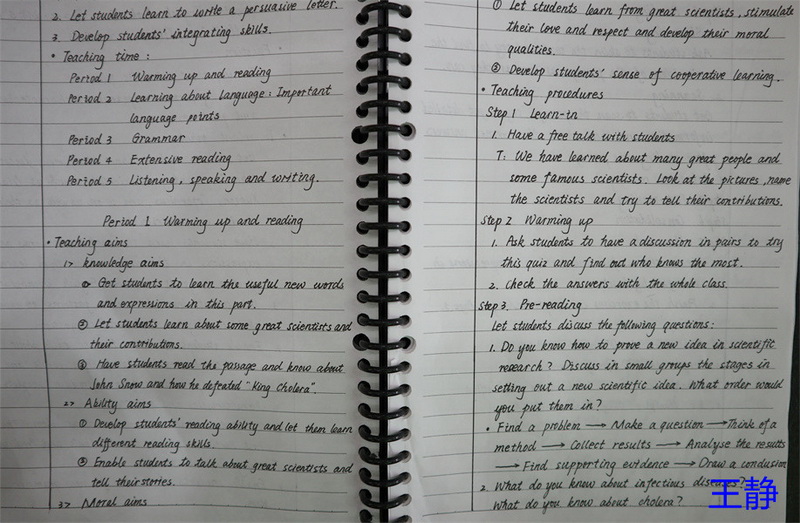 2. Let students learn to write a persuasive letter.
3. Develop students' integrating skills.
• Teaching time:
Period 1 Warming up and reading
Period 2 Learning about language: Important
language points
Period 3 Grammar
Period 4 Extensive reading
Period 5 Listening, speaking and writing.
Period 1 Warming up and reading
• Teaching aims
1> knowledge aims
① Get students to learn the useful new words
and expressions in this part.
② Let students learn about some great scientists and
their contributions.
③ Have students read the passage and know about
John Snow and how he defeated "King Cholera".
2> Ability aims
① Develop students' reading ability and let them learn
different reading skills
② Enable students to talk about great scientists and
tell their stories.
3> Moral aims
① Let students learn from great scientists, stimulate
their love and respect and develop their moral
qualities.
② Develop students' sense of cooperative learning.
• Teaching procedures
Step 1 Learn-in
1. Have a free talk with students
T: We have learned about many great people and
some famous scientists. Look at the pictures, name
the scientists and try to tell their contributions.
Step 2 Warming up
1. Ask students to have a discussion in pairs to try
this quiz and find out who knows the most.
2. Check the answers with the whole class
Step 3. Pre-reading
Let students discuss the following questions:
1. Do you know how to prove a new idea in scientific
research? Discuss in small groups the stages in
setting out a new scientific idea. What order would
you put them in?
• Find a problem → Make a question → Think of a
method → Collect results → Analyse the results
→ Find supporting evidence → Draw a conclusion
2. What do you know about infectious diseases?
What do you know about cholera?
王静